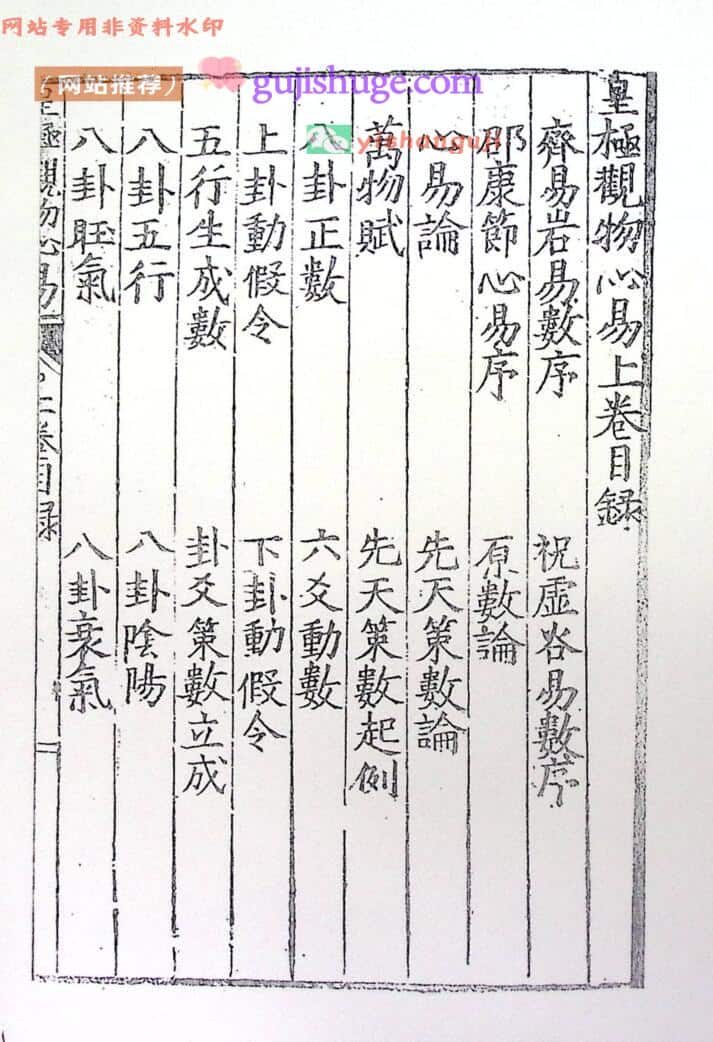 网站专用非资料水印
（网站推荐）
gujishuge.com
yishanguji
皇極觀物心易上卷目錄
齊易岩易數序 祝虚谷易數序
邵康節心易序 原數論
心易論 先天策數論
萬物賦 先天策數起例
八卦正數 六爻動數
上卦動假令 下卦動假令
五行生成數 卦爻策數立成
八卦五行 八卦陰陽
八卦旺氣 八卦衰氣
皇極觀物心易 上卷目録